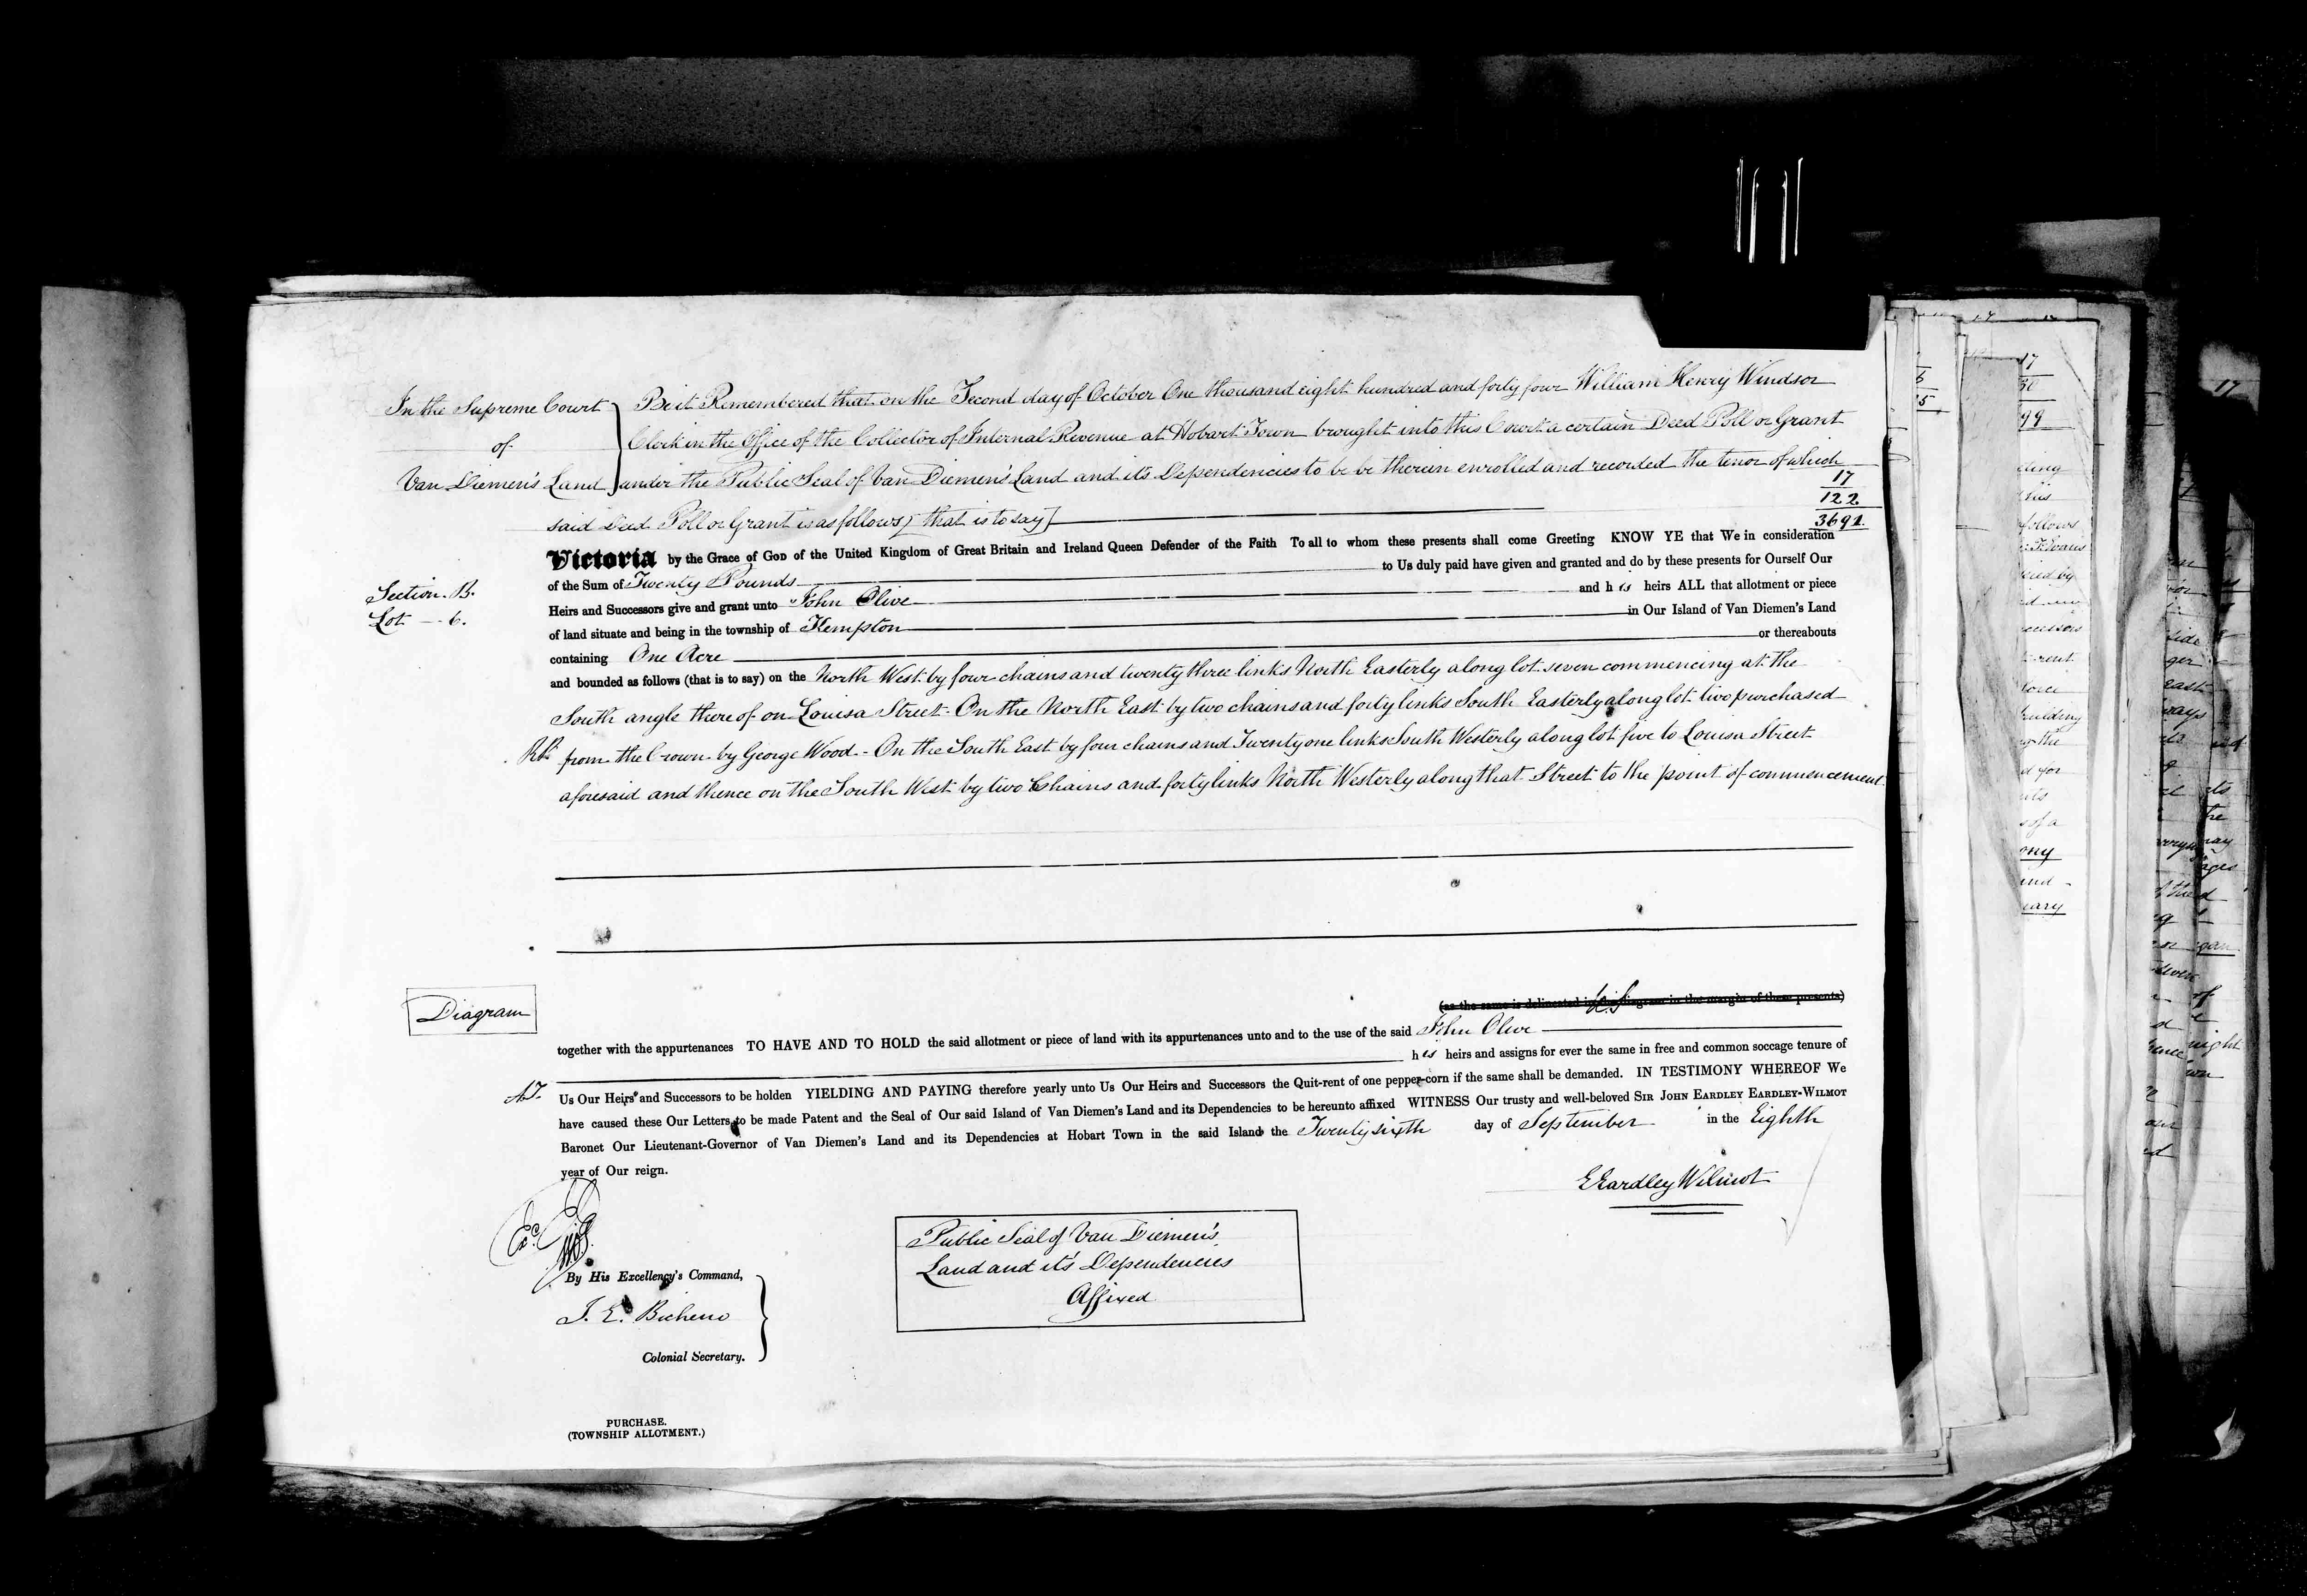 In the Supreme Court
of
Van Diemen's Land
Be it Remembered that on the Second day of October One thousand eight hundred and forty four William Henry Windsor
Clerk in the Office of the Collector of Internal Revenue at Hobart Town brought into this Court a certain Deed Poll or Grant
under the Public Seal of Van Diemen's Land and its Dependencies to be be therein enrolled and recorded the tenor of which
said Deed Poll or Grant is as follows that is to say
17
122
3691.
Victoria by the Grace of God of the United Kingdom of Great Britain and Ireland Queen Defender of the Faith To all to whom these presents shall come Greeting KNOW YE that We in consideration
of the Sum of Twenty Pounds to Us duly paid have given and granted and do by these presents for Ourself Our
Section. B.
Heirs and Successors give and grant unto John Olive and his heirs ALL that allotment or piece
Lot — 6.
of land situate and being in the township of Kempton in Our Island of Van Diemen's Land
containing One Acre or thereabouts
and bounded as follows (that is to say) on the North West by four chains and twenty three links North Easterly along lot seven commencing at the
South angle thereof on Louisa Street - On the North East by two chains and forty links South Easterly along lot two purchased
from the Crown by George Wood - On the South East by four chains and Twenty one links South Westerly along lot five to Louisa Street
aforesaid and thence on the South West by two Chains and forty links North Westerly along that Street to the point of commencement
(as the same is delineated in the diagram in the margin of these presents)
Diagram
together with the appurtenances TO HAVE AND TO HOLD the said allotment or piece of land with its appurtenances unto and to the use of the said John Olive
his heirs and assigns for ever the same in free and common soccage tenure of
Us Our Heirs and Successors to be holden YIELDING AND PAYING therefore yearly unto Us Our Heirs and Successors the Quit-rent of one pepper-corn if the same shall be demanded. IN TESTIMONY WHEREOF We
have caused these Our Letters to be made Patent and the Seal of Our said Island of Van Diemen's Land and its Dependencies to be hereunto affixed WITNESS Our trusty and well-beloved Sir John Eardley Eardley-Wilmot
Baronet Our Lieutenant-Governor of Van Diemen's Land and its Dependencies at Hobart Town in the said Island the Twenty sixth day of September in the Eighth
year of Our reign.
E Eardley Wilmot
Public Seal of Van Diemen's
Land and it's Dependencies
Affixed
By His Excellency's Command,
J. E. Bicheno
Colonial Secretary.
PURCHASE.
(TOWNSHIP ALLOTMENT.)